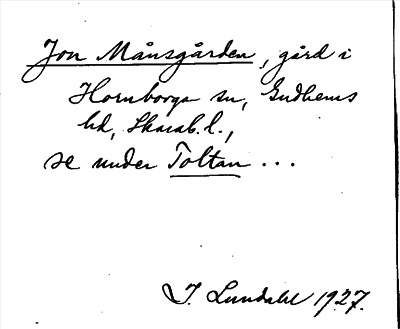 Jon Månsgården, gård i
Hornborga sn, Gudhems
hd, Skarab. l.,
se under Toltan ...
I. Lundahl 1927.